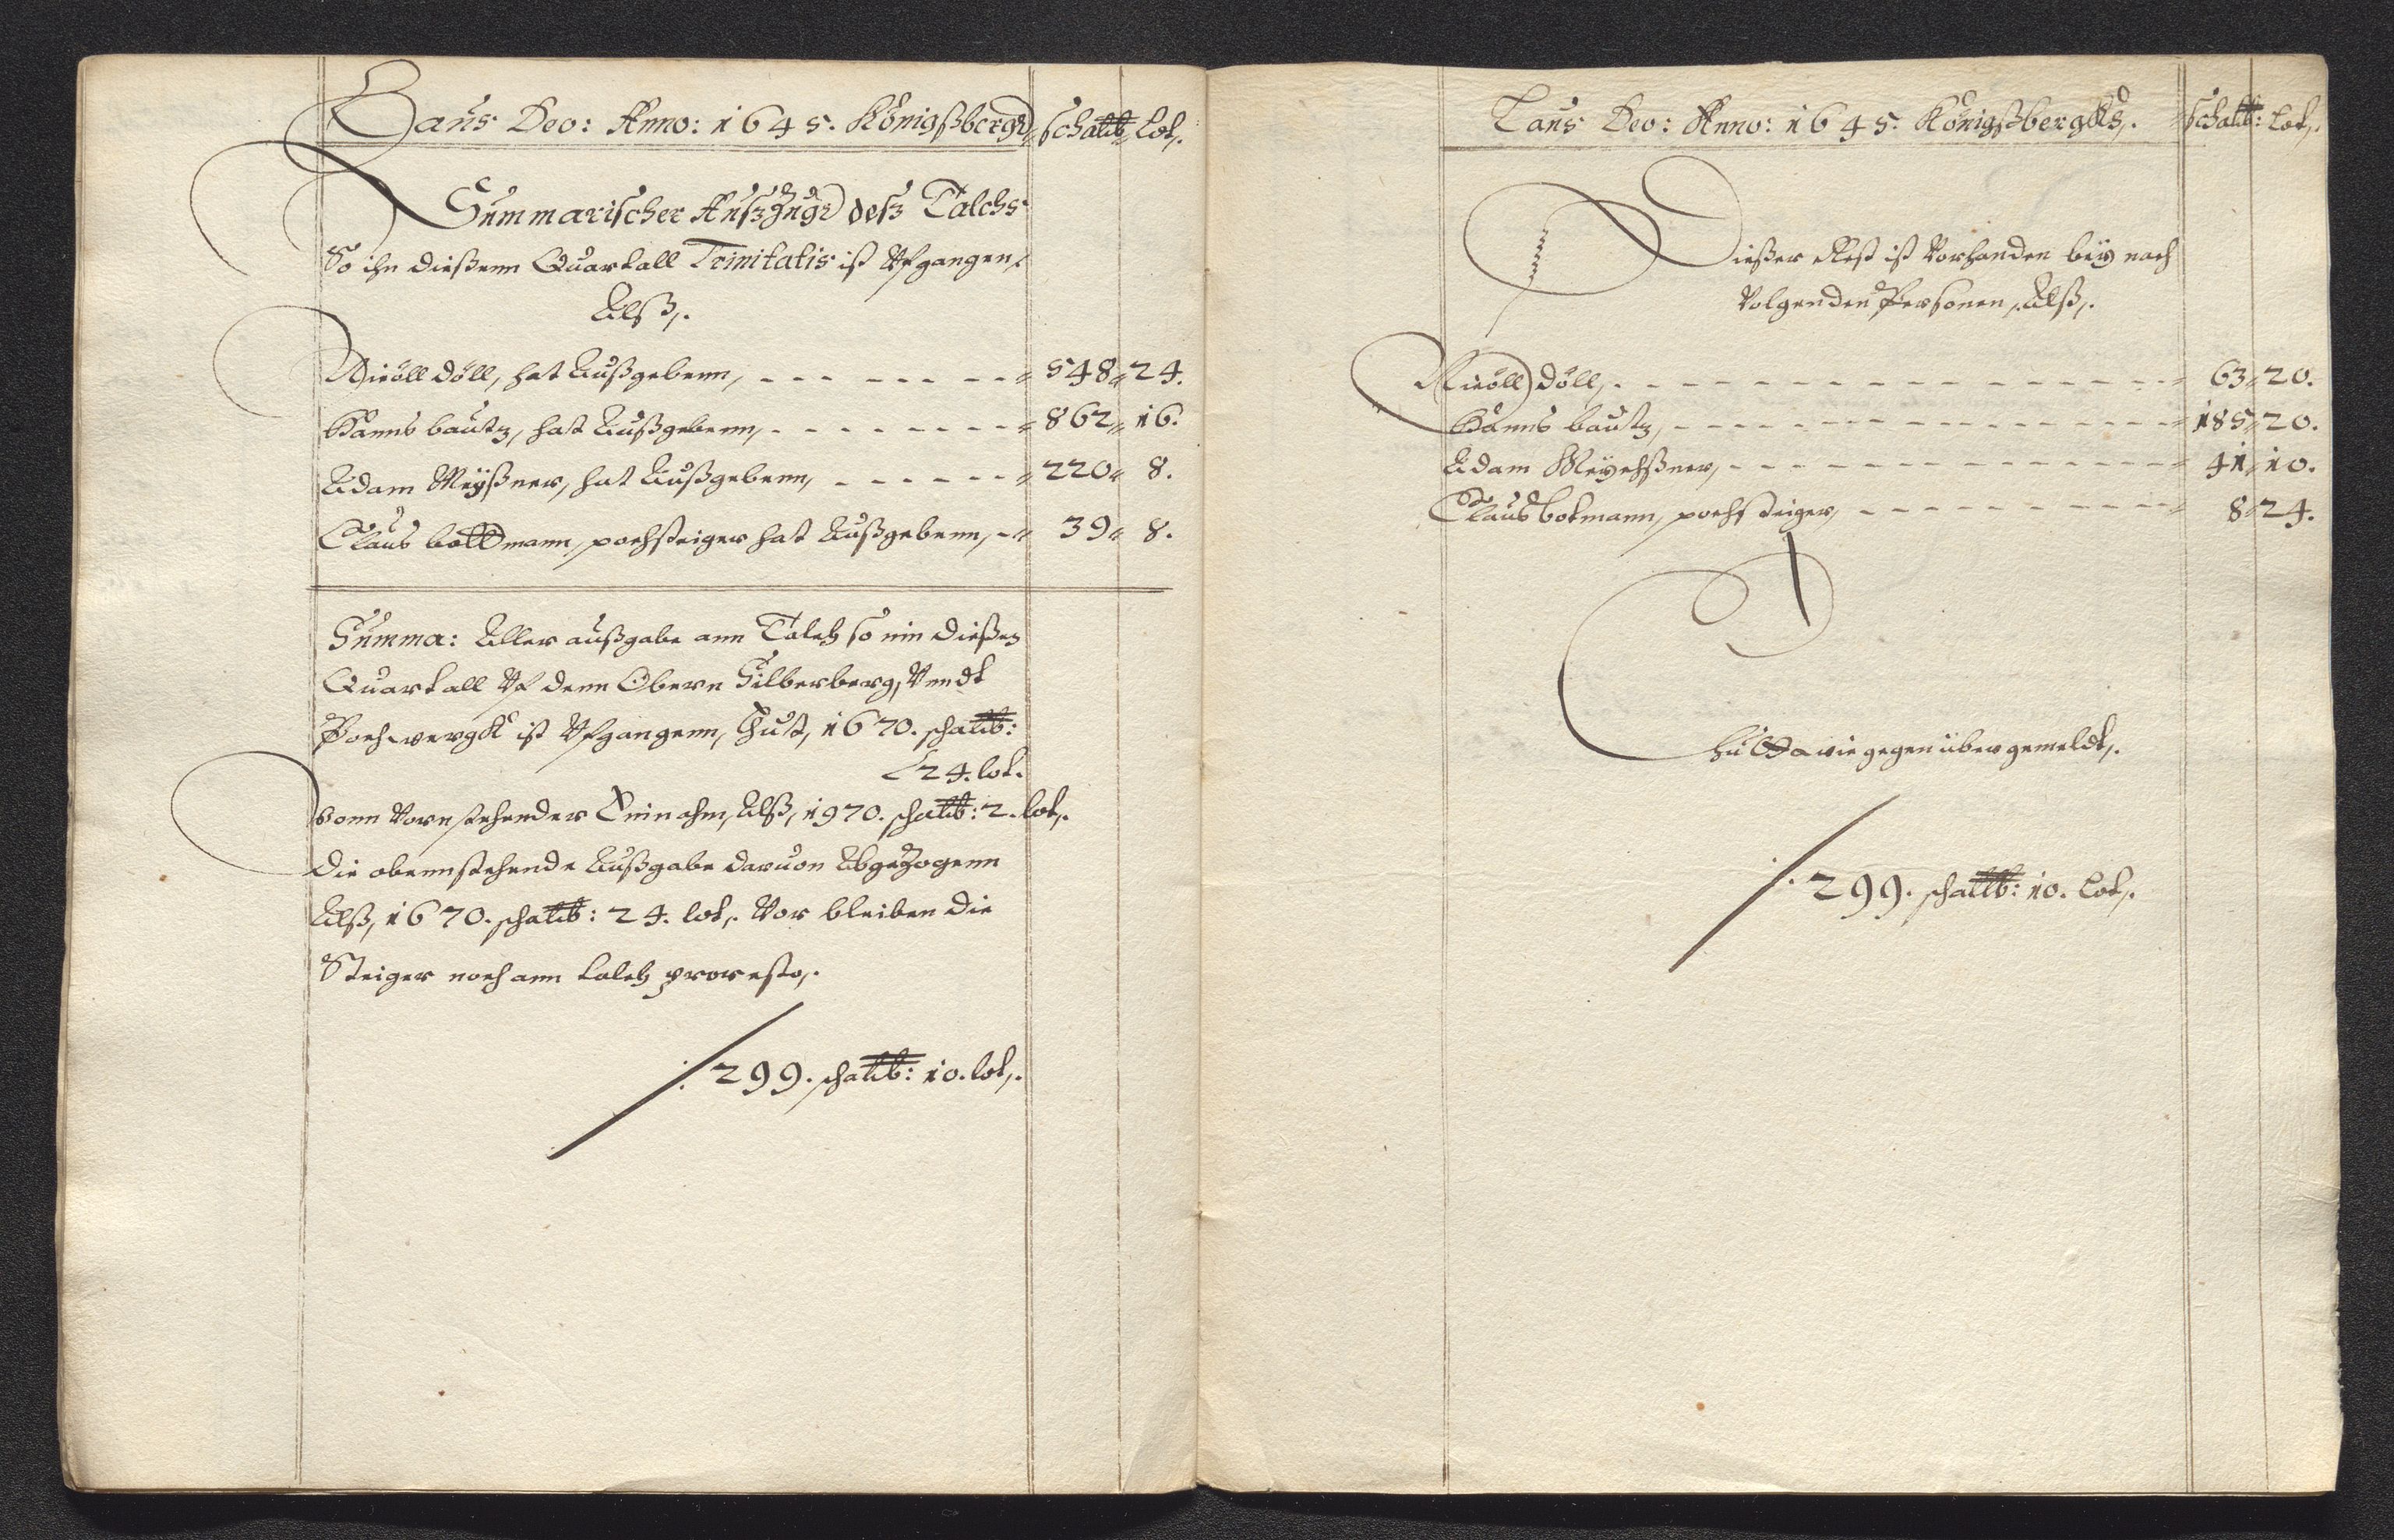 Laus Deo: Anno: 1645. Königßbergk, schal℔ lot,.
Summarischer Außzugk deß Talchs
So ihn dießenn Quartall Trinitatis ist Vfgangen,
Alß,.
Nicoll Döll, hat Außgebenn, 548 24.
Hanns bautz, hat Außgebenn, 862 16.
Adam Meÿßner, hat Außgebenn, 220 8.
Claus bottmann, pochsteiger hat Außgebenn, 39 8.
Summa: Aller außgabe ann Talch so inn dießen
Quartall Vf denn Obern Silberberg, Vnndt
Pochwergk ist Vfgangenn, thutt, 1670. schal℔:
24. lot.
Vonn Vornstehender Einnahm, Alß, 1970. schal℔: 2. lot,.
die obennstehende Außgabe daruon Abgezogenn
Alß, 1670. schal℔: 24. lot,. Vor bleiben die
Steiger noch ann talch pro resto,.
299. schal℔: 10. lot,.
Laus Deo: Anno: 1645. Königßbergks,. schal℔: lot,.
Dießer Rest ist Vorhanden beÿ nach
Volgenden Personen, Alß,.
Nicoll Döll, 63 20.
Hanns bautz, 185 20.
Adam Meÿchßner, 41 10.
Claus botmann, pochsteiger, 8 24.
wie gegenüber gemeldt,.
299. schal℔: 10. lot,.